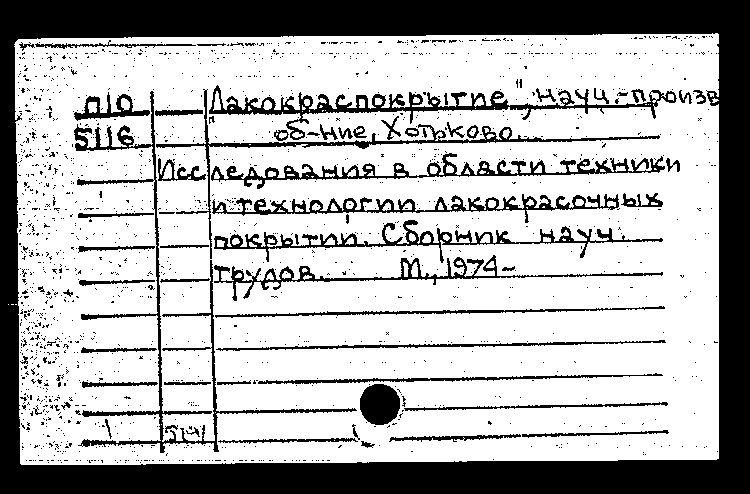 П10 "Лакокраспокрытие", науч.-произв
5116 об-ние, Хотьково.
Исследования в области техники
и технологии лакокрасочных
покрытий. Сборник науч.
трудов. М., 1974-